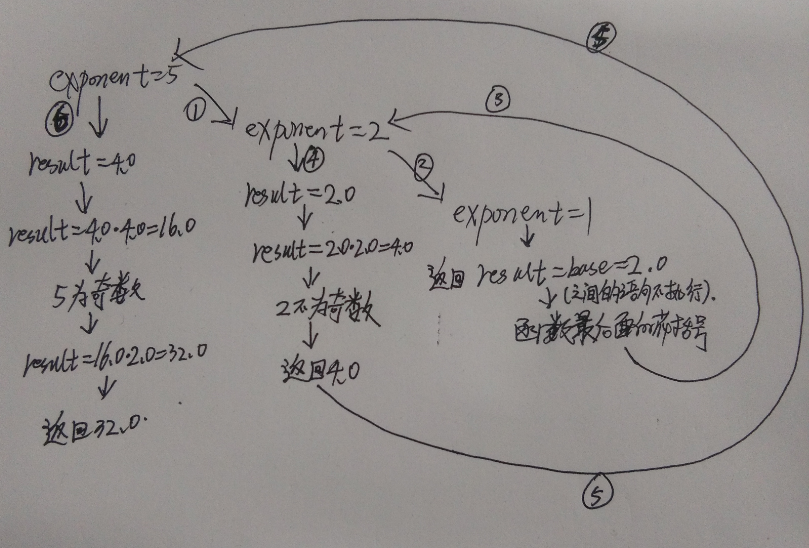 ⑤
exponent=5
⑥
result=4.0
result=4.0·4.0=16.0
5为奇数
result=16.0·2.0=32.0
返回32.0.
①
exponent=2
④
result=2.0
result=2.0·2.0=4.0
2不为奇数
返回4.0
③
②
exponent=1
返回 result=base=2.0
(之间的语句不执行).
函数最后面的花括号
⑤